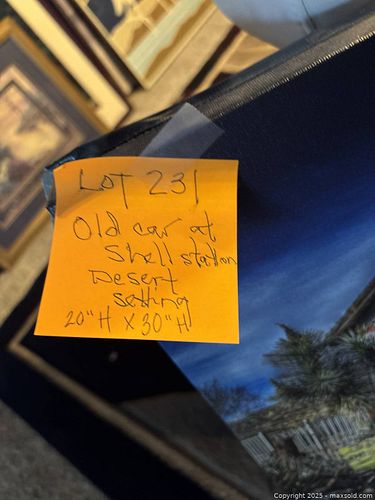 LOT 231
Old car at
Shell station
Desert
setting
20"H X 30"H
Copyright 2025 - maxsold.com